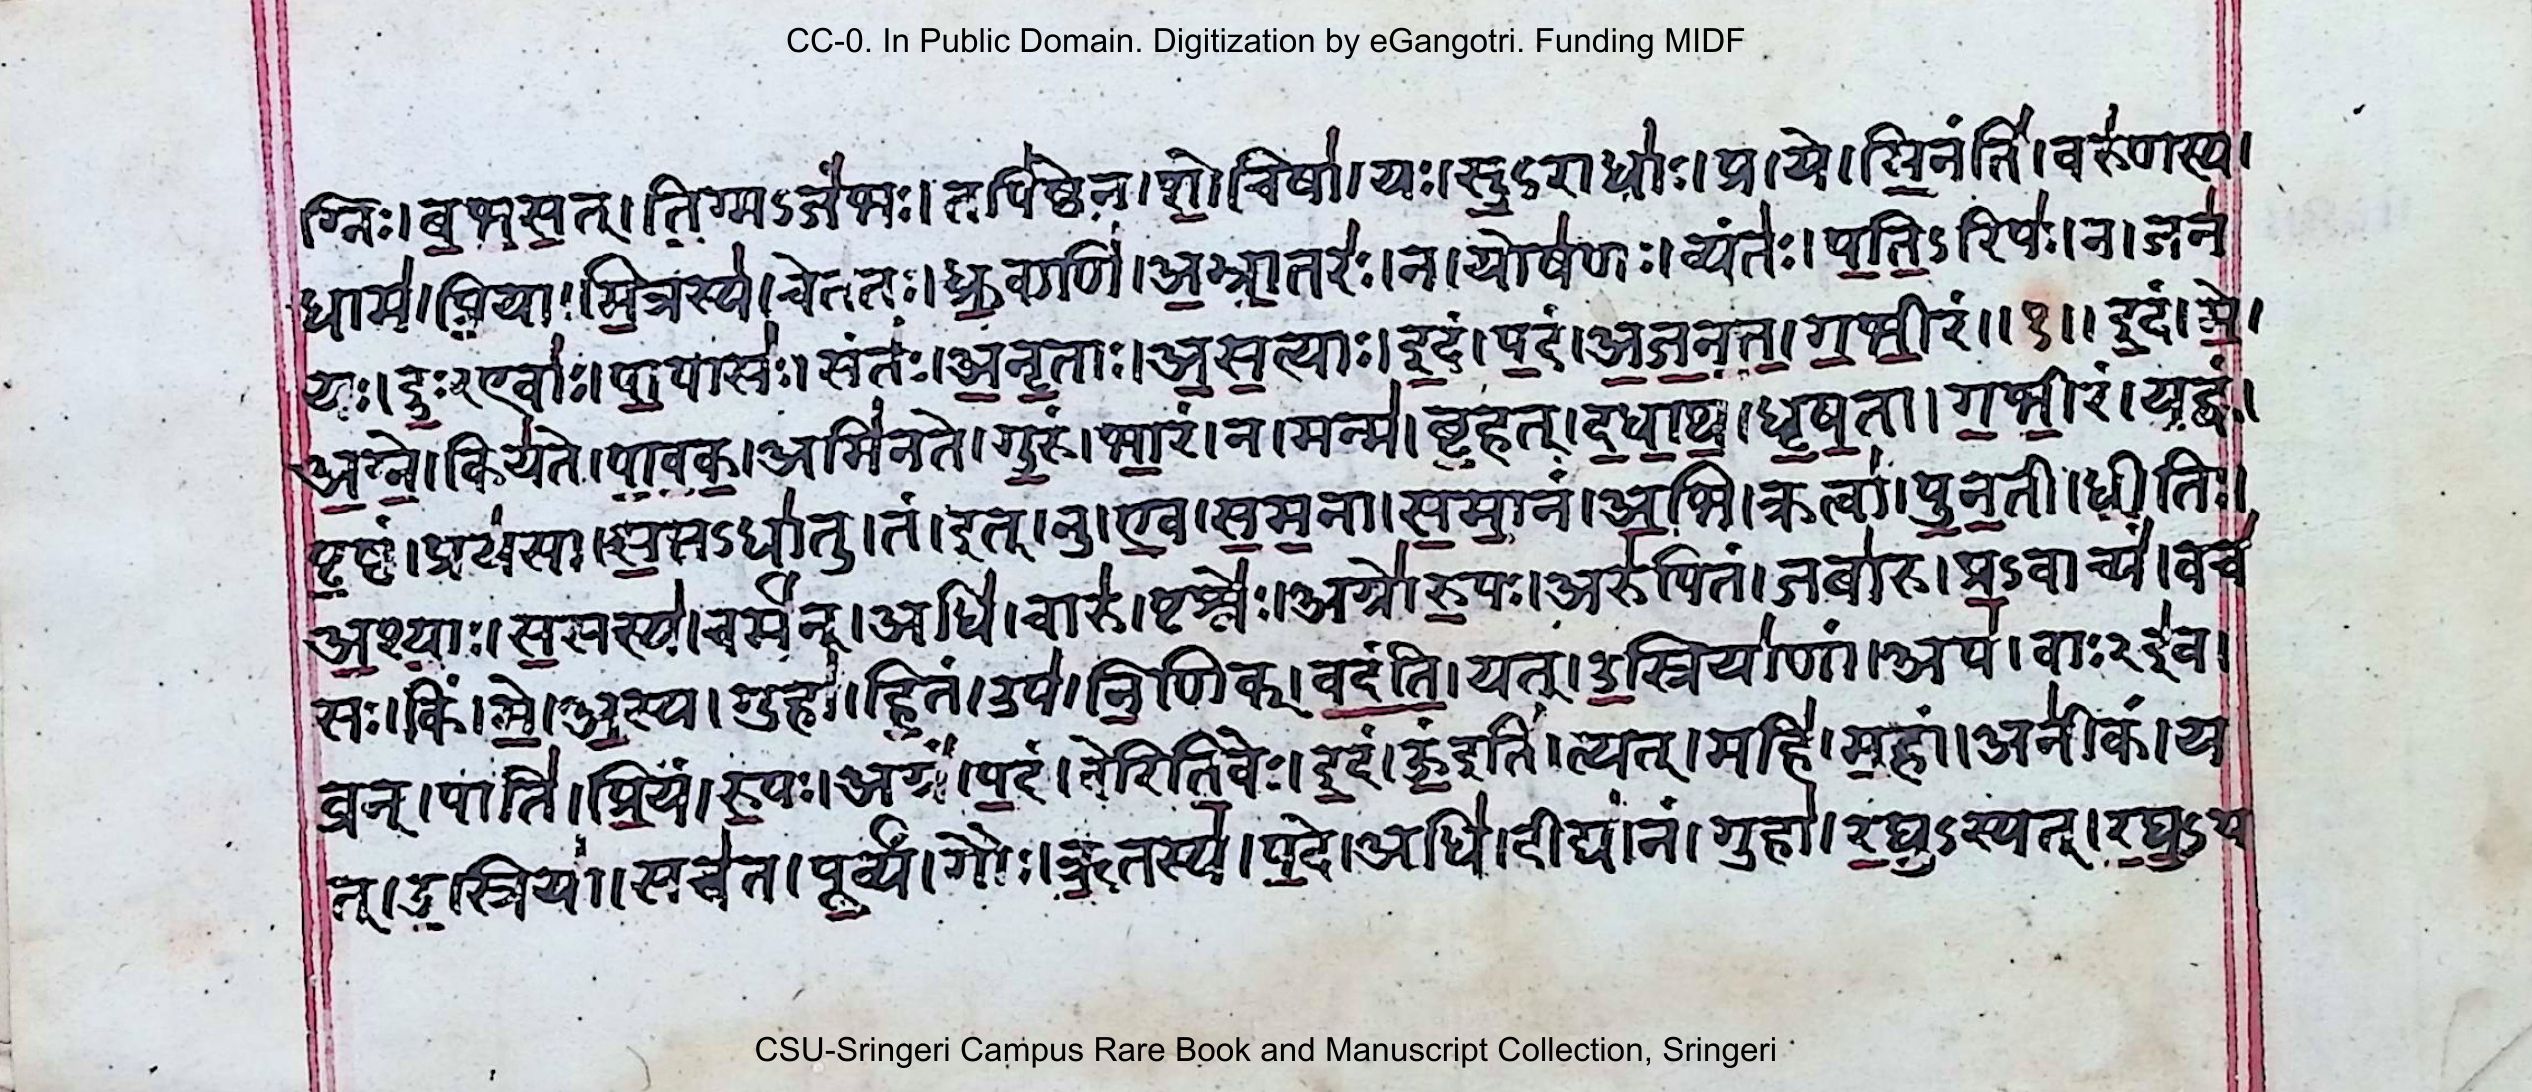 CC-0. In Public Domain. Digitization by eGangotri. Funding MIDF
ग्निः। ब॒भ॒स॒त्। ति॒ग्मऽजं॑भः। तपि॑ष्ठेन। शो॒चिषा॑। यः। सु॒ऽराधाः॑। प्र। ये। मि॒नंति॑। वरु॑णस्य।
धाम॑। प्रि॒या। मि॒त्रस्य॑। चेत॑तः। ध्रु॒वाणि॑। अ॒भ्रा॒तरः॑। न। योष॑णः। व्यंतः॑। प॒ति॒ऽरिपः॑। न। जन॑
यः। दुः॒२एवाः॑। पा॒पासः॑। संतः॑। अ॒नृ॒ताः। अ॒स॒त्याः। इ॒दं। प॒दं। अ॒ज॒न॒त॒। ग॒भी॒रं॥ १॥ इ॒दं। मे॒।
अ॒ग्ने॒। किय॑ते। पा॒व॒क॒। अमि॑नते। गु॒रुं। भा॒रं। न। मन्म॑। बृ॒हत्। द॒धा॒थ॒। धृ॒ष॒ता। ग॒भी॒रं। य॒ह्वं।
पृ॒ष्ठं। प्रय॑सा। स॒प्तऽधा॑तु। तं। इत्। नु। ए॒व। स॒म॒ना। स॒मा॒नं। अ॒भि। क्रत्वा॑। पु॒न॒ती। धी॒तिः।
अ॒श्याः॒। स॒सस्य॑। चर्म॑न्। अधि॑। चारु॑। पृश्नेः॑। अग्रे॑। रु॒पः। अरु॑पितं। जबा॑रु। प्र॒ऽवाच्यं॑। वच॑
सः। किं। मे॒। अ॒स्य। गुहा॑। हि॒तं। उप॑। नि॒णिक्। व॒दं॒ति॒। यत्। उ॒स्रिया॑णां। अप॑। वाः२इ॑व।
व्रन्। पाति॑। प्रि॒यं। रु॒पः। अग्रं॑। प॒दं। वेरिति॒वेः। इ॒दं। ऊं॒इति॑। त्यत्। महि॑। म॒हां। अनी॑कं। य
त्। उ॒स्रिया॑। सच॑त। पू॒र्व्यं। गौः। ऋ॒तस्य॑। प॒दे। अधि॑। दीद्या॑नं। गुहा॑। र॒घु॒ऽस्यत्। र॒घु॒ऽय
CSU-Sringeri Campus Rare Book and Manuscript Collection, Sringeri